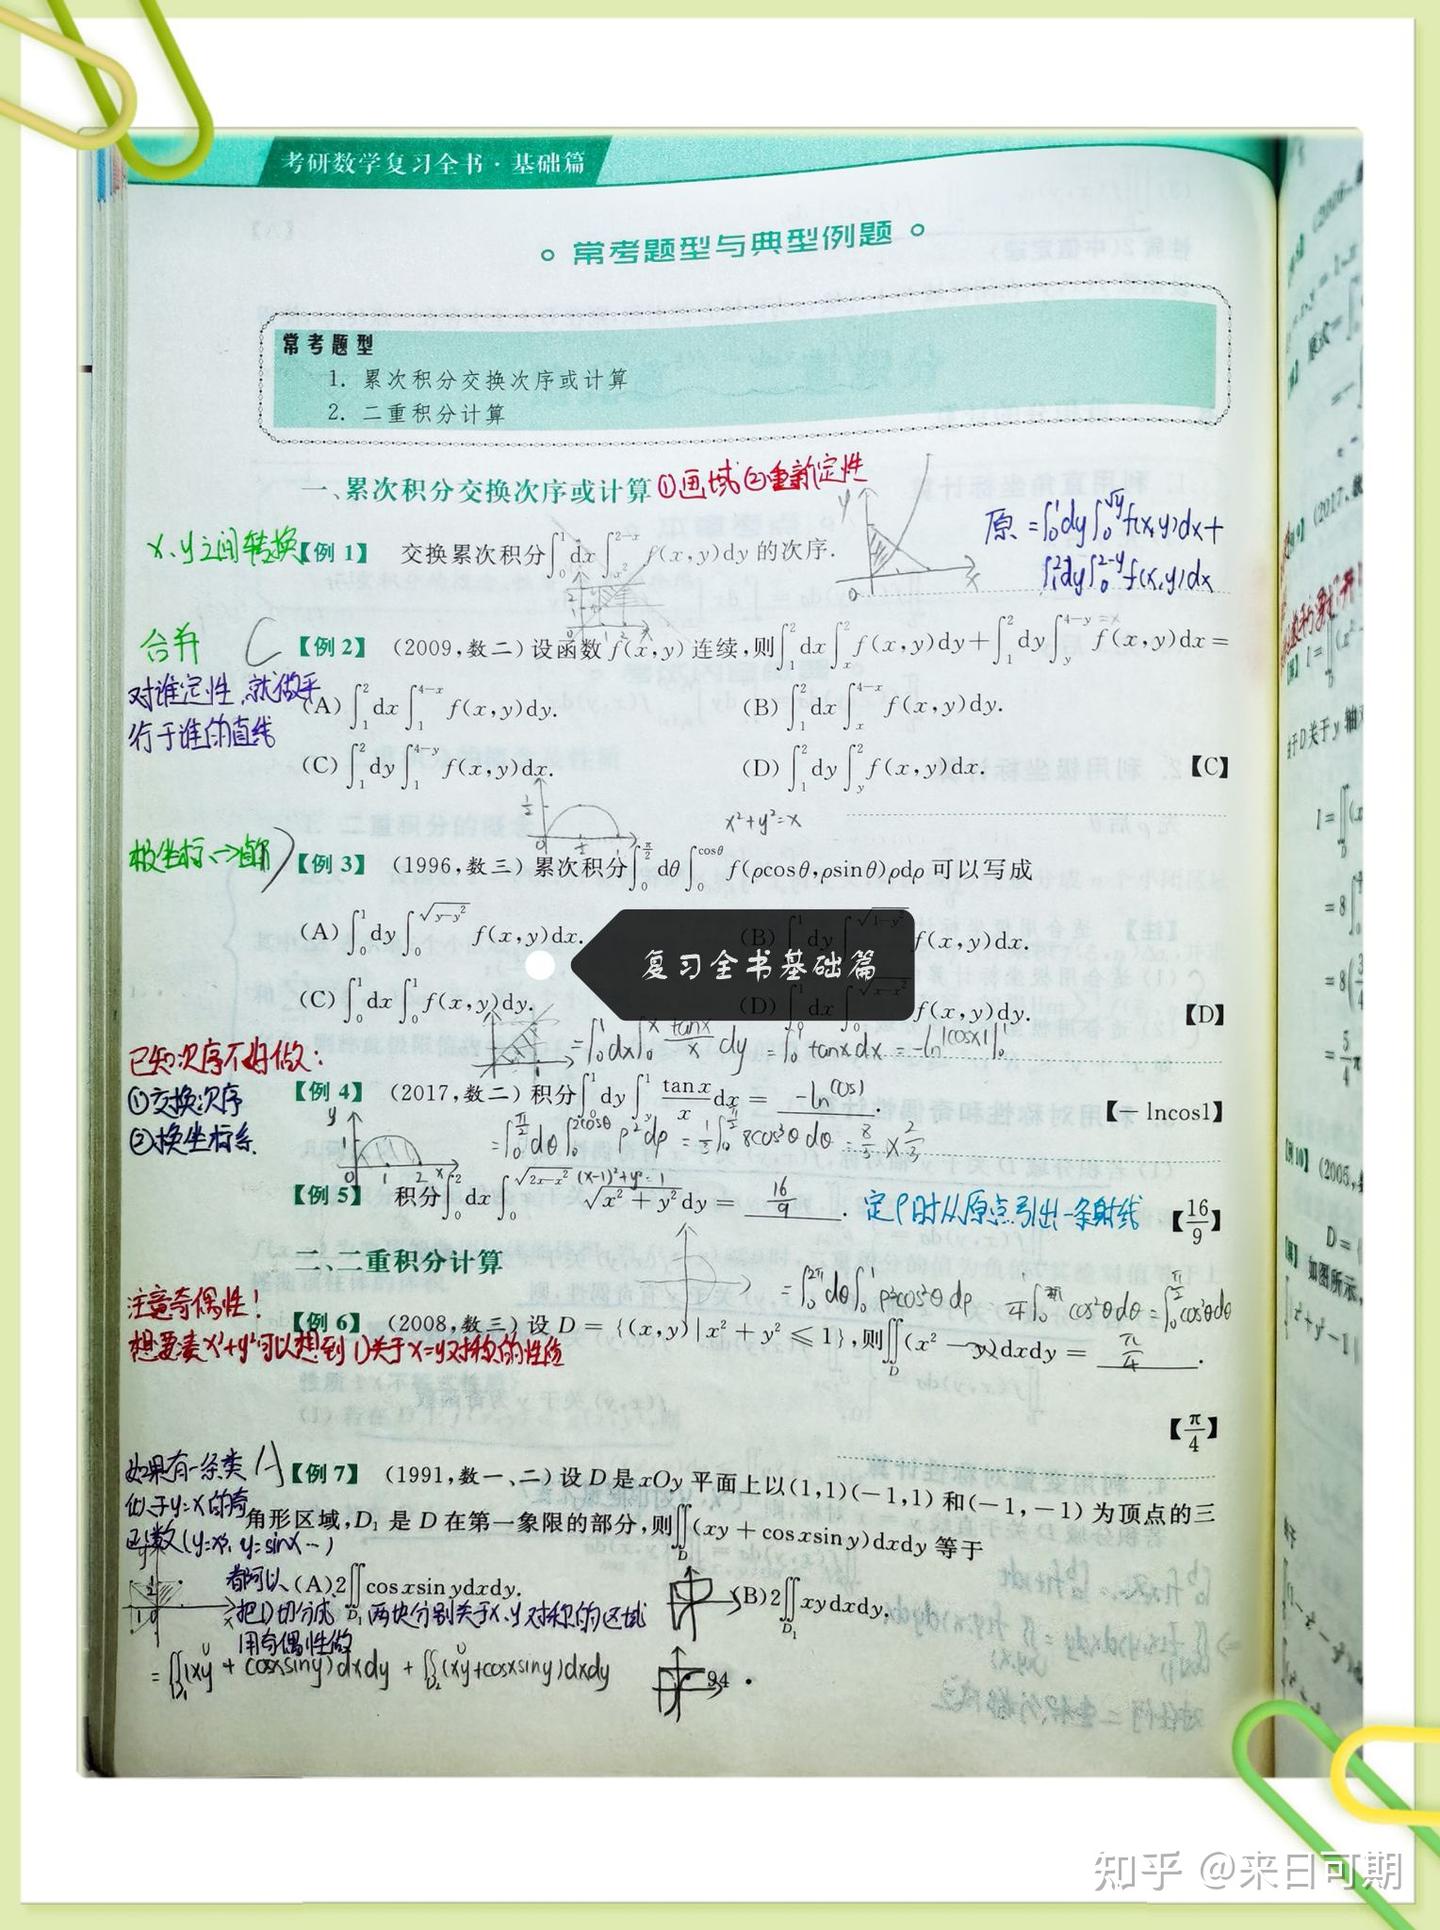 考研数学复习全书·基础篇
常考题型与典型例题
常考题型
1. 累次积分交换次序或计算
2. 二重积分计算
一、累次积分交换次序或计算 ①画域②重新定性
x、y之间转换
【例 1】 交换累次积分∫₀¹dx∫_{x²}^{2-x} f(x,y)dy 的次序.
原=∫₀¹dy∫₀^{√y}f(x,y)dx+
∫₁²dy∫₀^{2-y}f(x,y)dx
合并 C
【例 2】 (2009,数二)设函数 f(x,y)连续,则∫₁²dx∫ₓ² f(x,y)dy+∫₁²dy∫_y^{4-y} f(x,y)dx=
对谁定性,就做平
行于谁的直线
(A)∫₁²dx∫₁^{4-x} f(x,y)dy. (B)∫₁²dx∫ₓ^{4-x} f(x,y)dy.
(C)∫₁²dy∫₁^{4-y} f(x,y)dx. (D)∫₁²dy∫_y² f(x,y)dx. 【C】
x²+y²=x
极坐标→直角
【例 3】 (1996,数三)累次积分∫₀^{π/2}dθ∫₀^{cosθ} f(ρcosθ,ρsinθ)ρdρ 可以写成
(A)∫₀¹dy∫₀^{√(y-y²)} f(x,y)dx. (B)∫₀¹dy∫₀^{√(1-y²)} f(x,y)dx.
复习全书基础篇
(C)∫₀¹dx∫₀¹ f(x,y)dy. (D)∫₀¹dx∫₀^{√(x-x²)} f(x,y)dy. 【D】
=∫₀¹dx∫₀ˣ tanx/x dy =∫₀¹ tanxdx = -ln|cosx||₀¹
已知次序不好做:
①交换次序
②换坐标系
【例 4】 (2017,数二)积分∫₀¹dy∫_y¹ tanx/x dx = -ln cos1 . 【-lncos1】
=∫₀^{π/2}dθ∫₀^{2cosθ}ρ²dρ = 1/3∫₀^{π/2} 8cos³θdθ = 8/3×2/3
(x-1)²+y²=1
【例 5】 积分∫₀²dx∫₀^{√(2x-x²)} √(x²+y²)dy = 16/9 . 定ρ时从原点引出一条射线 【16/9】
二、二重积分计算
=∫₀^{2π}dθ∫₀¹ρ³cos²θdρ
注意奇偶性!
【例 6】 (2008,数三)设 D={(x,y)|x²+y²≤1},则∬_D(x²-y)dxdy = π/4 .
想要凑x²+y²可以想到D关于x=y对称的性质
【π/4】
如果有一条类
似于y=x的奇
函数(y=x³, y=sinx…)
都可以
把D切分成 两块分别关于x、y对称的区域
用奇偶性做
A
【例 7】 (1991,数一、二)设 D 是 xOy 平面上以(1,1)(-1,1) 和(-1,-1) 为顶点的三
角形区域,D₁ 是 D 在第一象限的部分,则∬_D(xy+cosxsiny)dxdy 等于
(A)2∬_{D₁}cosxsinydxdy. (B)2∬_{D₁}xydxdy.
=∬_{D₁}(xy+cosxsiny)dxdy+∬_{D₂}(xy+cosxsiny)dxdy
94
知乎 @来日可期